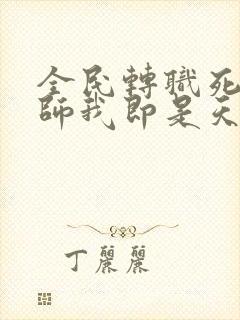 全民轉職死
師我即是天
丁麗麗